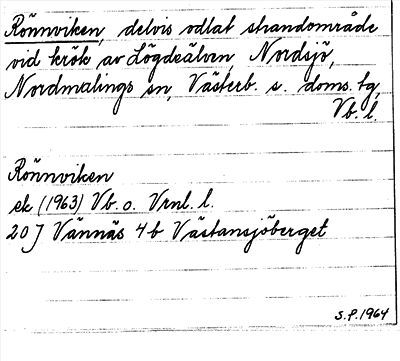 Rönnviken, delvis odlat strandområde
vid krök av Lögdeälven, Nordsjö,
Nordmalings sn, Västerb. s. doms. tg,
Vb. l.
Rönnviken
ek (1963) Vb. o. Vrnl. l.
20 J Vännäs 4b Västansjöberget
S.P. 1964